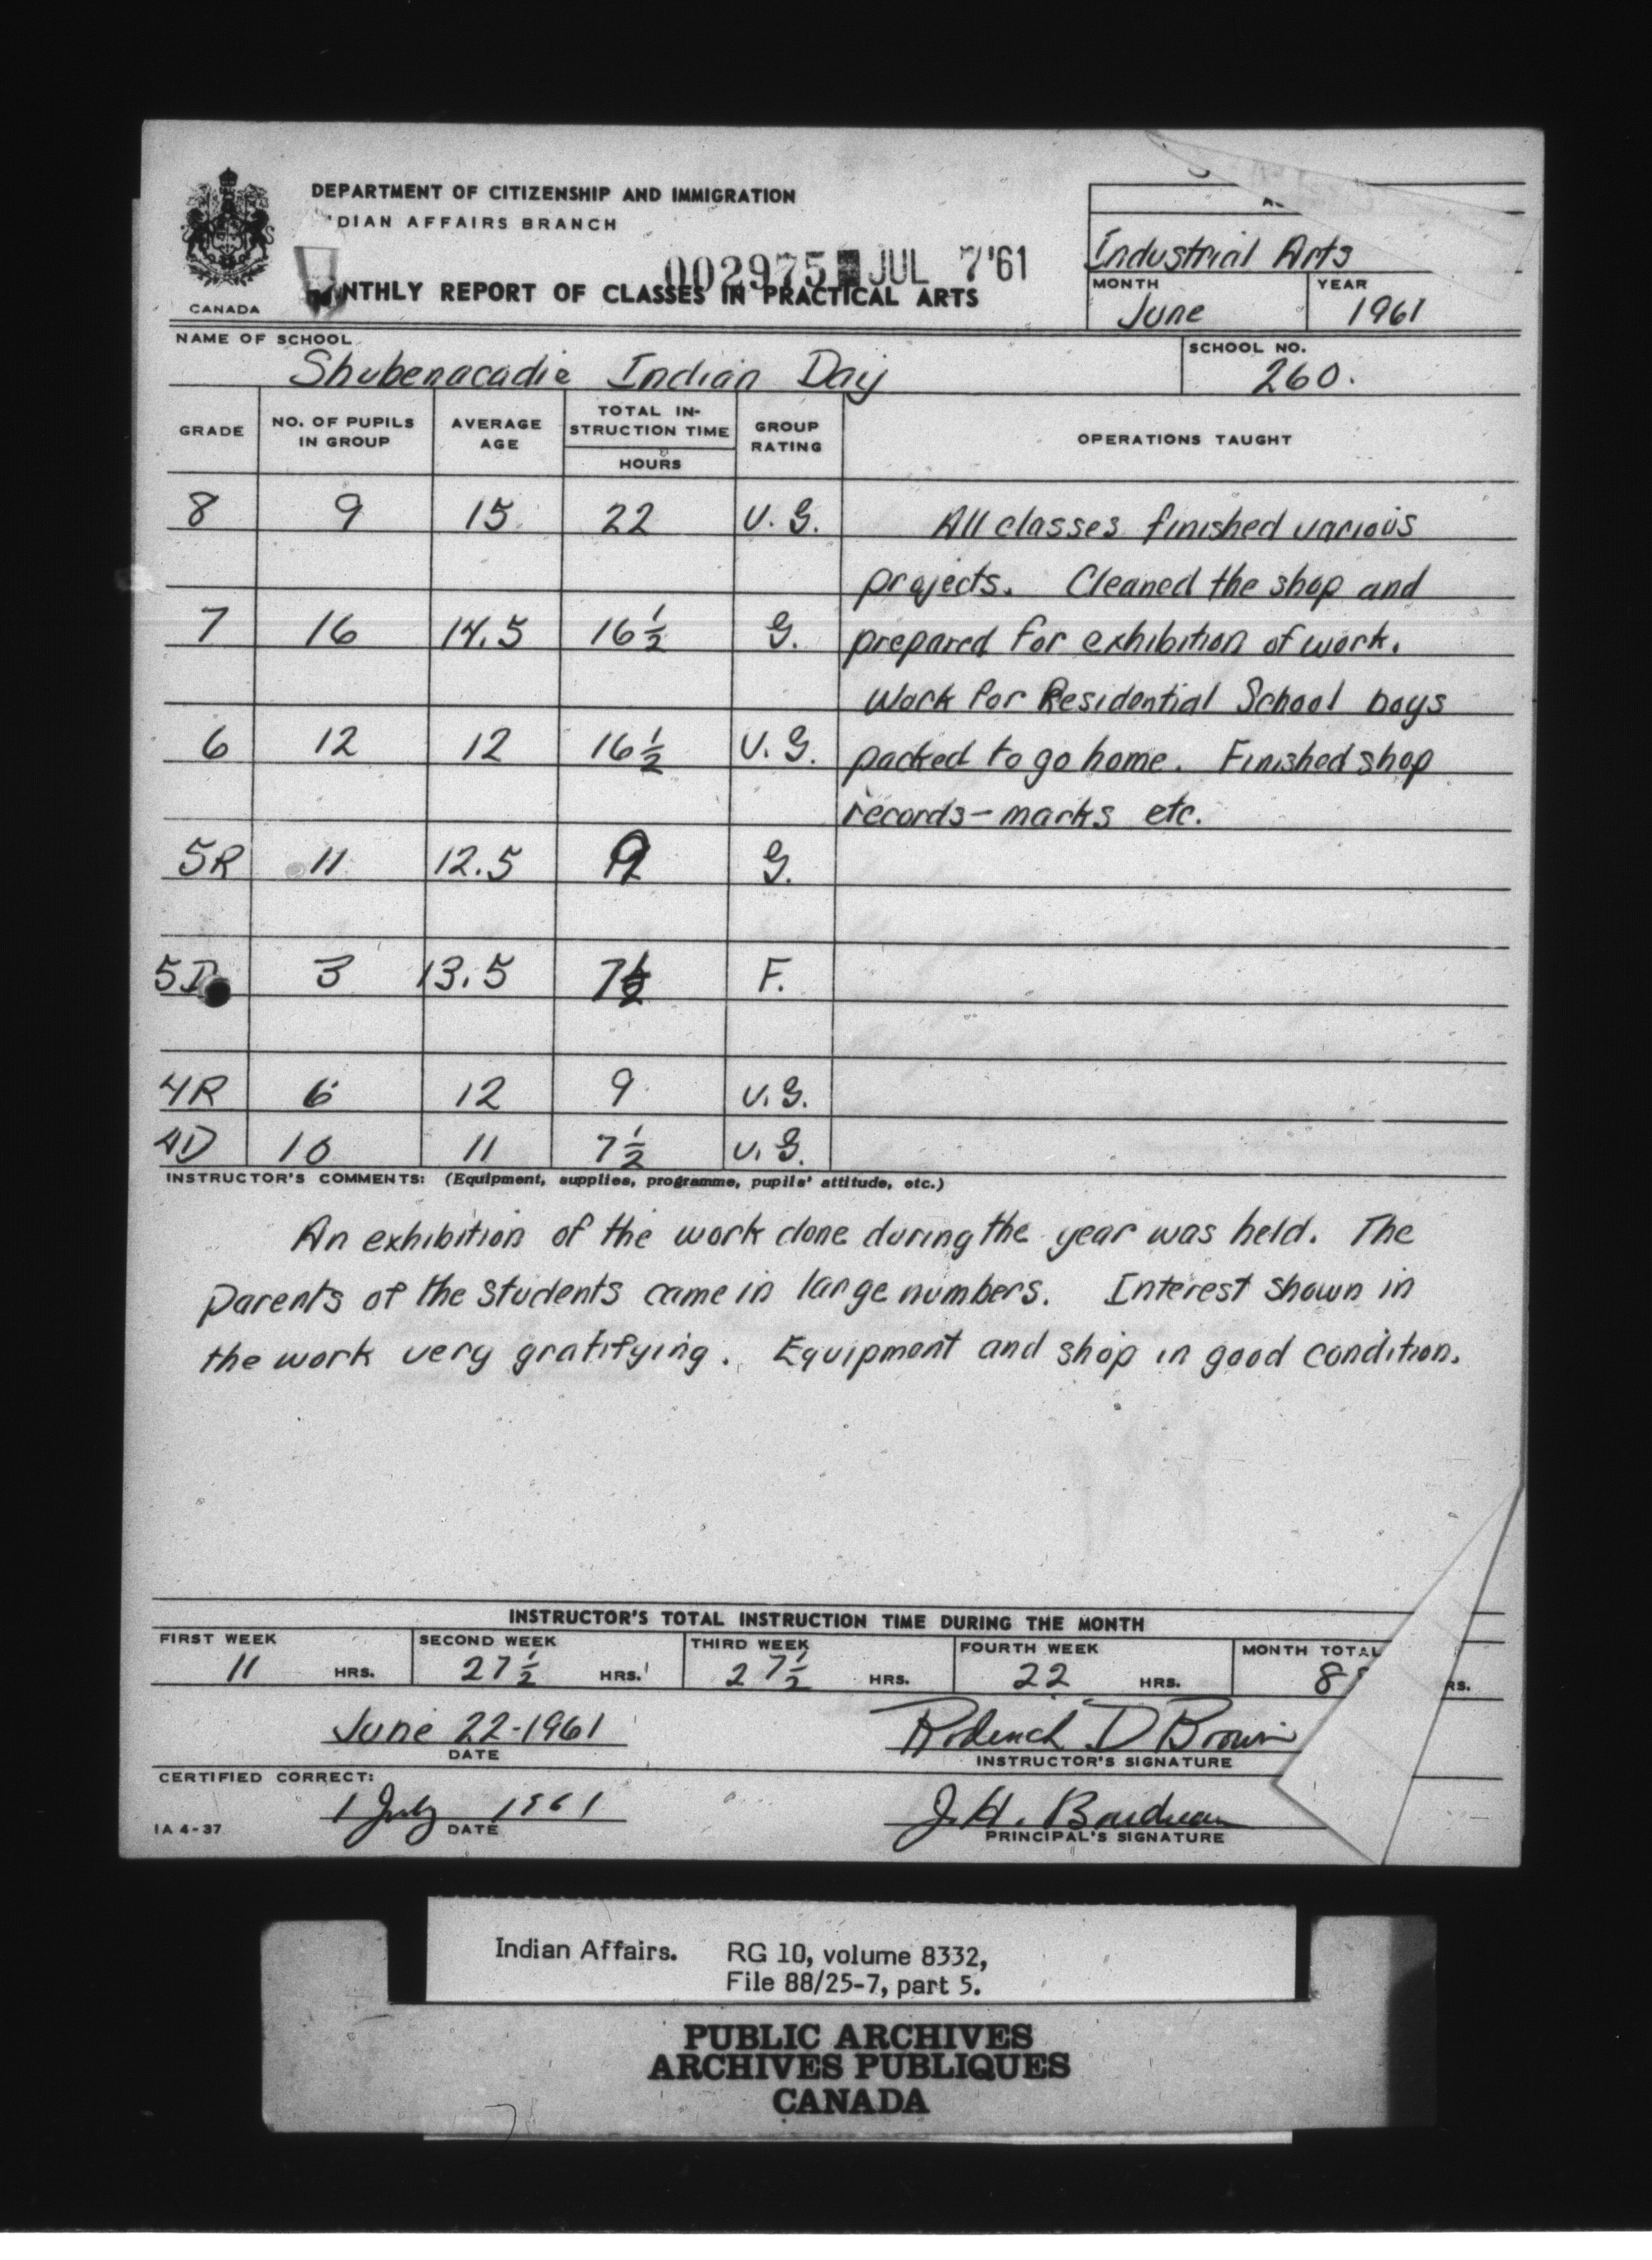 DEPARTMENT OF CITIZENSHIP AND IMMIGRATION
DIAN AFFAIRS BRANCH
002975 JUL 7'61
NTHLY REPORT OF CLASSES IN PRACTICAL ARTS
CANADA
Industrial Arts
MONTH YEAR
June 1961
NAME OF SCHOOL
Shubenacadie Indian Day
SCHOOL NO.
260.
GRADE NO. OF PUPILS IN GROUP AVERAGE AGE TOTAL IN-STRUCTION TIME HOURS GROUP RATING OPERATIONS TAUGHT
8 9 15 22 V. G. All classes finished various
projects. Cleaned the shop and
7 16 14.5 16 1/2 G. prepared for exhibition of work.
Work for Residential School boys
6 12 12 16 1/2 V. G. packed to go home. Finished shop
records - marks etc.
5R 11 12.5 9 G.
5D 3 13.5 7 1/2 F.
4R 6 12 9 V. G.
4D 10 11 7 1/2 V. G.
INSTRUCTOR'S COMMENTS: (Equipment, supplies, programme, pupils' attitude, etc.)
An exhibition of the work done during the year was held. The
Parents of the students came in large numbers. Interest shown in
the work very gratifying. Equipment and shop in good condition.
INSTRUCTOR'S TOTAL INSTRUCTION TIME DURING THE MONTH
FIRST WEEK SECOND WEEK THIRD WEEK FOURTH WEEK MONTH TOTAL
11 HRS. 27 1/2 HRS. 27 1/2 HRS. 22 HRS. 8 RS.
June 22-1961 Roderick D Brown
DATE INSTRUCTOR'S SIGNATURE
CERTIFIED CORRECT:
1 July 1961 J. H.
IA 4-37 DATE PRINCIPAL'S SIGNATURE
Indian Affairs. RG 10, volume 8332,
File 88/25-7, part 5.
PUBLIC ARCHIVES
ARCHIVES PUBLIQUES
CANADA